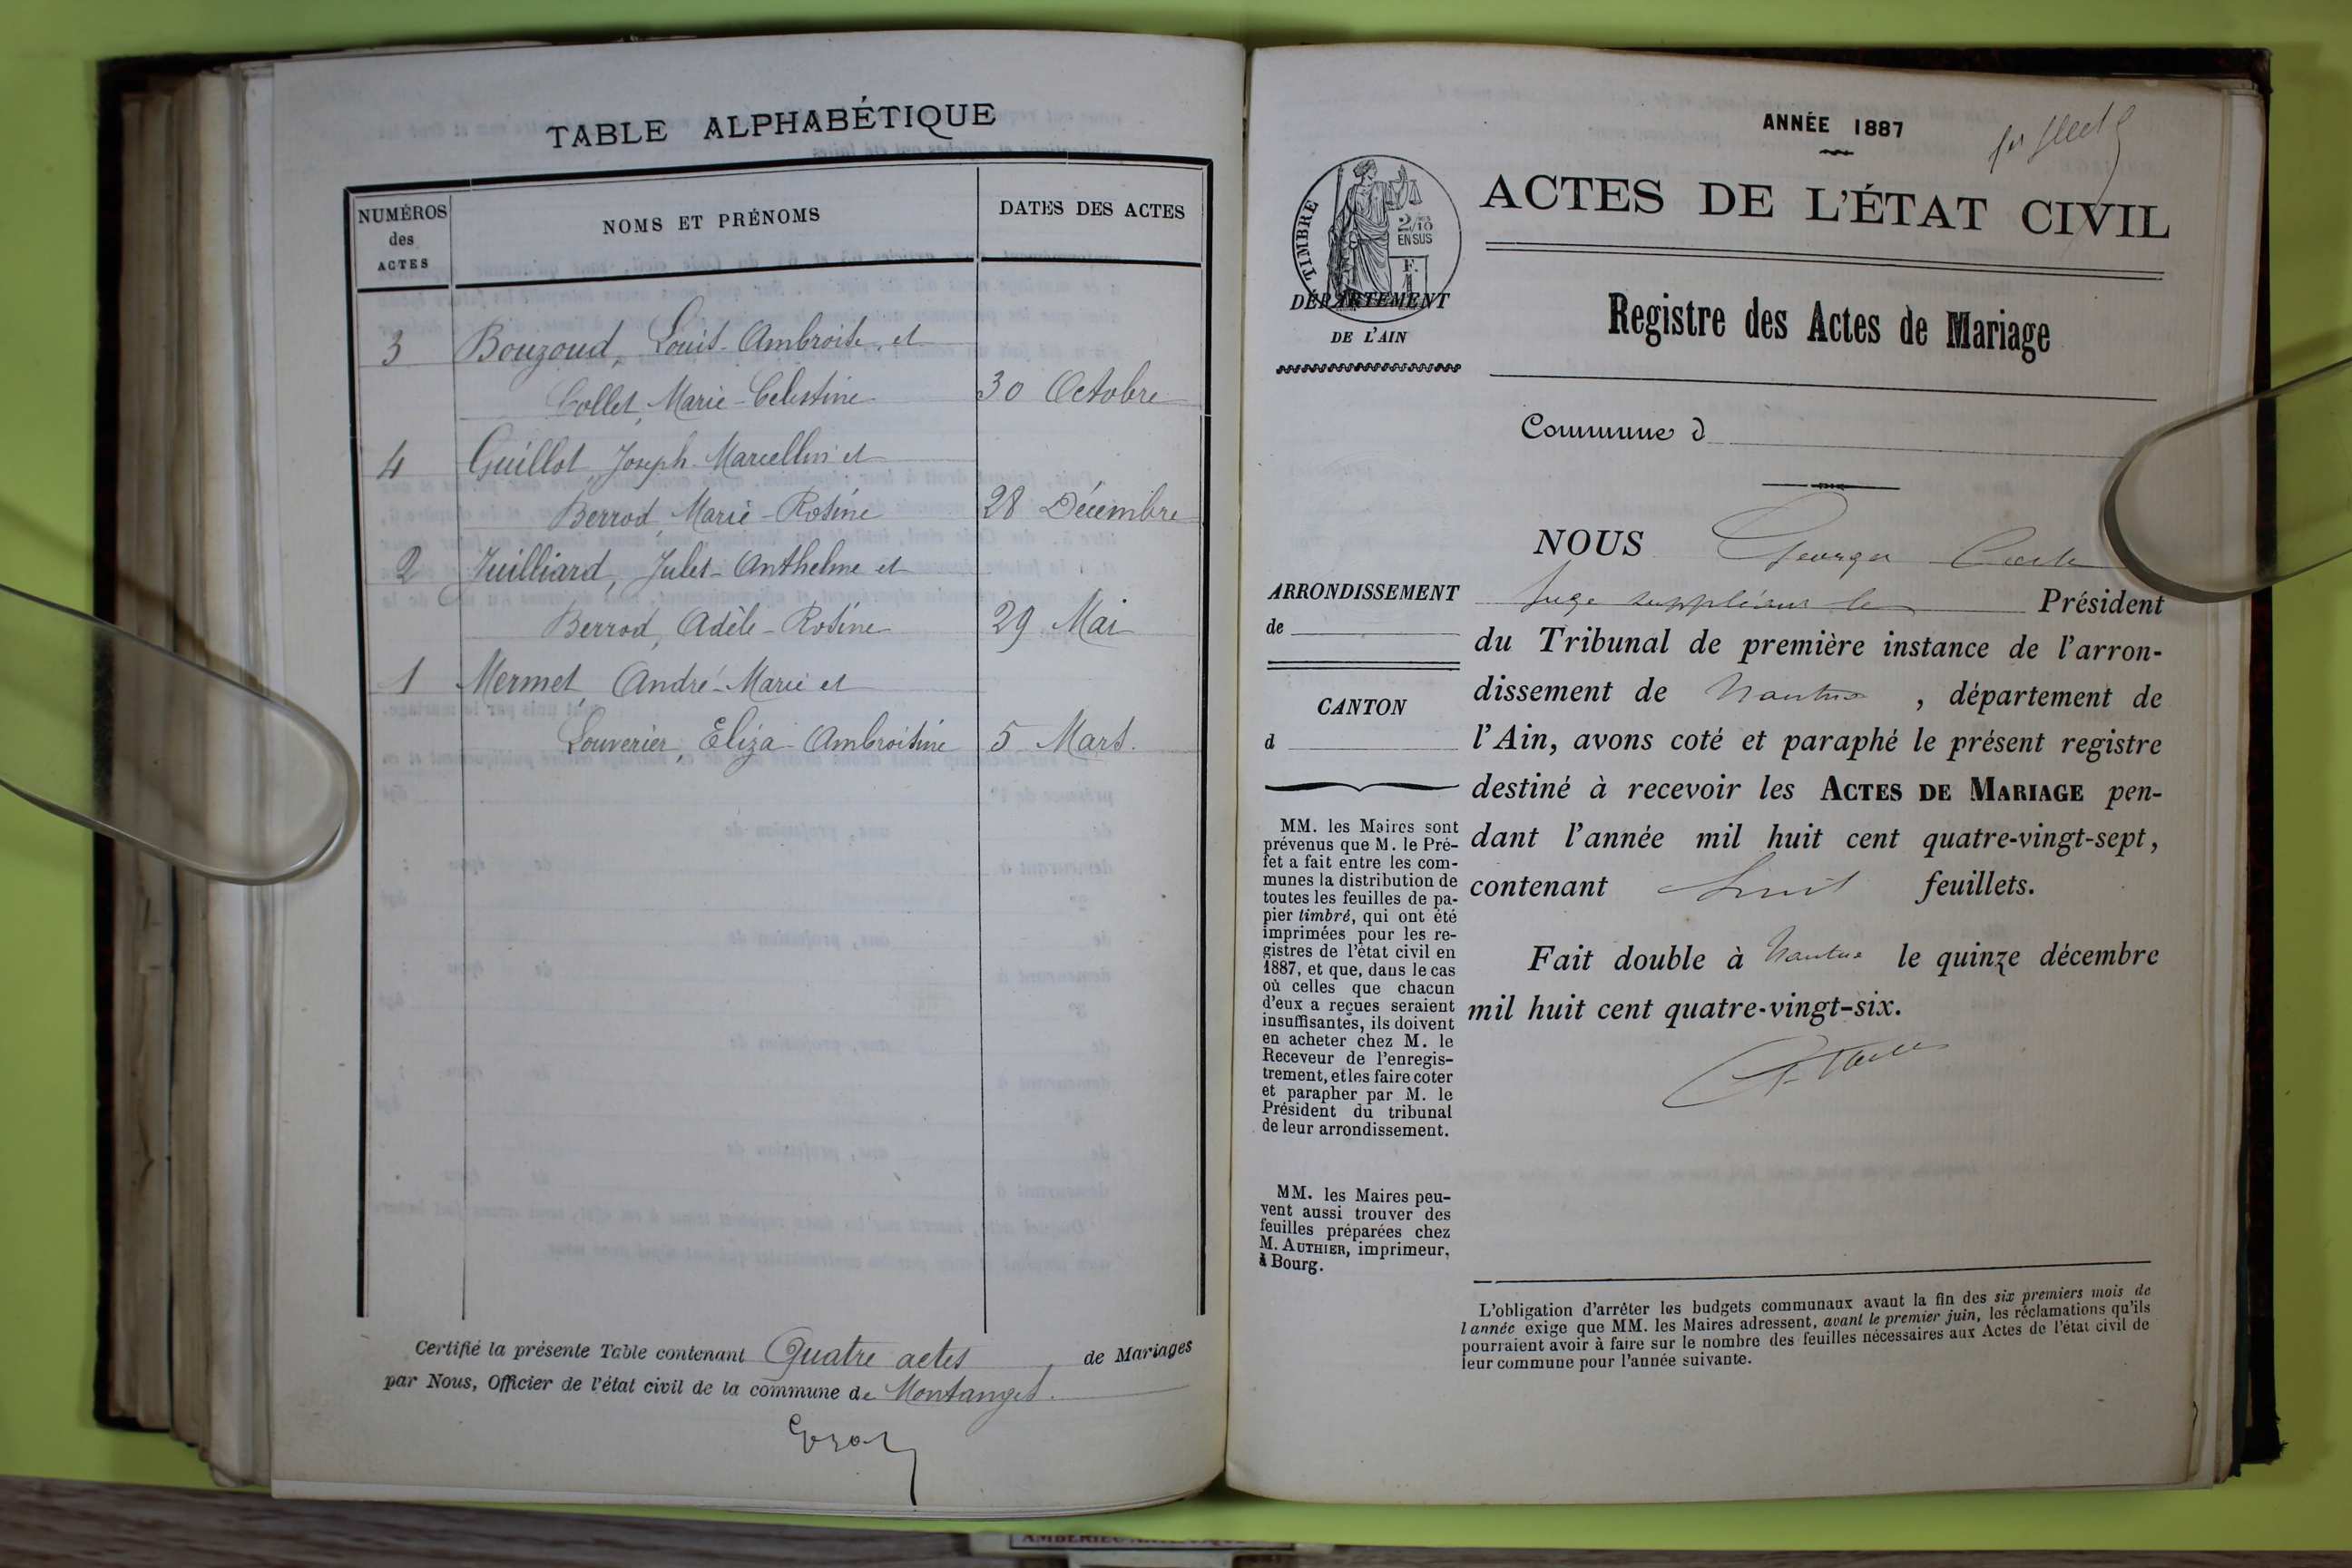 TABLE ALPHABÉTIQUE
NUMÉROS
des
ACTES
NOMS ET PRÉNOMS
DATES DES ACTES
3 Bouzoud, Louis-Ambroise, et
Collet, Marie-Celestine 30 Octobre
4 Guillot Joseph-Marcellin et
Berrod, Marie-Rosine 28 Décembre
2 Juilliard, Jules-Anthelme et
Berrod, Adèle-Rosine 29 Mai
1 Mermet, André-Marie et
Louverier, Eliza-Ambroisine 5 Mars.
Certifié la présente Table contenant Quatre actes de Mariages
par Nous, Officier de l'état civil de la commune de Montanges.
ANNÉE 1887
TIMBRE
2/10
EN SUS
F.
1
DÉPARTEMENT
DE L'AIN
ACTES DE L'ÉTAT CIVIL
Registre des Actes de Mariage
Commune d
ARRONDISSEMENT
de
CANTON
d
MM. les Maires sont
prévenus que M. le Pré-
fet a fait entre les com-
munes la distribution de
toutes les feuilles de pa-
pier timbré, qui ont été
imprimées pour les re-
gistres de l'état civil en
1887, et que, dans le cas
où celles que chacun
d'eux a reçues seraient
insuffisantes, ils doivent
en acheter chez M. le
Receveur de l'enregis-
trement, et les faire coter
et parapher par M. le
Président du tribunal
de leur arrondissement.
MM. les Maires peu-
vent aussi trouver des
feuilles préparées chez
M. AUTHIER, imprimeur,
à Bourg.
NOUS Georges
Juge suppléant le Président
du Tribunal de première instance de l'arron-
dissement de Nantua, département de
l'Ain, avons coté et paraphé le présent registre
destiné à recevoir les ACTES DE MARIAGE pen-
dant l'année mil huit cent quatre-vingt-sept,
contenant huit feuillets.
Fait double à Nantua le quinze décembre
mil huit cent quatre-vingt-six.
L'obligation d'arrêter les budgets communaux avant la fin des six premiers mois de
l'année exige que MM. les Maires adressent, avant le premier juin, les réclamations qu'ils
pourraient avoir à faire sur le nombre des feuilles nécessaires aux Actes de l'état civil de
leur commune pour l'année suivante.